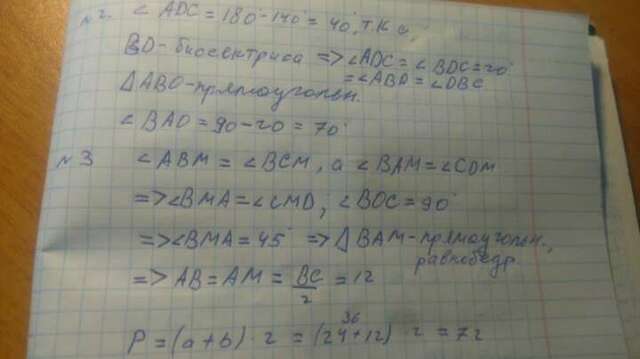 №2. ∠ADC = 180°-140° = 40°, т.к.
BD-биссектриса => ∠ADC = ∠BDC = 20°
= ∠ABD = ∠DBC
△ABD-прямоугольн.
∠BAD = 90-20 = 70°
№3 ∠ABM = ∠BCM, а ∠BAM = ∠CDM
=> ∠BMA = ∠CMD, ∠BOC = 90°
=> ∠BMA = 45° => △BAM-прямоугольн.,
равнобедр
=> AB = AM = BC/2 = 12
36
P = (a+b)·2 = (24+12)·2 = 72